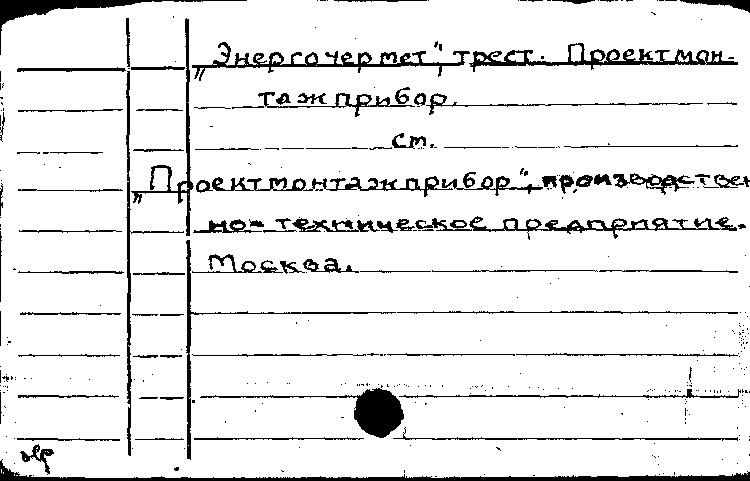 „Энергочермет", трест. Проектмон-
тажприбор.
ст.
„Проектмонтажприбор", производствен
но-техническое предприятие.
Москва.